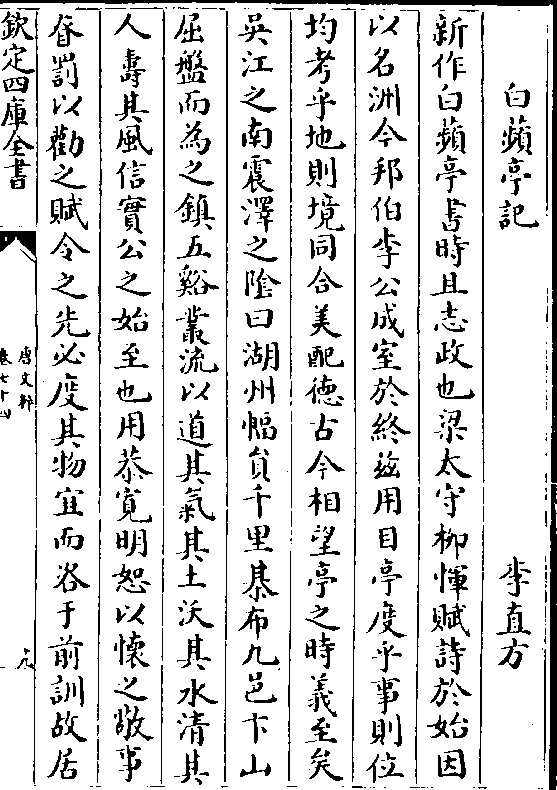 白蘋亭記 李直方
新作白蘋亭書時且志政也梁太守柳惲賦詩於始因
以名洲今邦伯李公成室於終茲用目亭度乎事則位
均考乎地則境同合美配德古今相望亭之時義至矣
吳江之南震澤之陰曰湖州幅員千里棊布九邑卞山
屈盤而為之鎮五谿叢流以道其氣其土沃其水清其
人壽其風信實公之始至也用恭寬明恕以懷之敬事
眘罰以勸之賦令之先必度其物宜而咨于前訓故居
欽定四庫全書
唐文粹
卷七十四
九